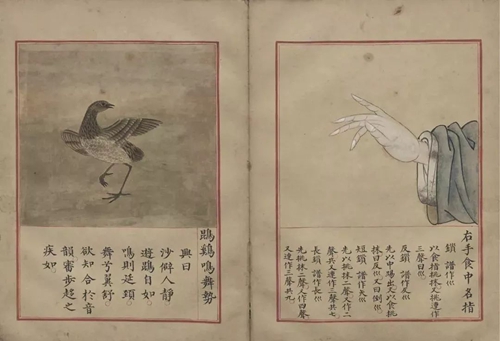 右手食中名指
鎖 譜作
以食指挑抹又挑連作
三聲曰
反鎖 譜作反
先以中踢出又以食挑
抹曰反又曰倒
短鎖 譜作矢
先以挑抹二聲又作二
聲共又連作三聲共七
長鎖 譜作長
先挑抹二聲又作四聲
又連作三聲共九
鵾鷄鳴舞勢
興曰
沙僻人靜
遊鵾自如
鳴則延頸
舞兮翼舒
欲知合於音
韻審步趨之
疾如